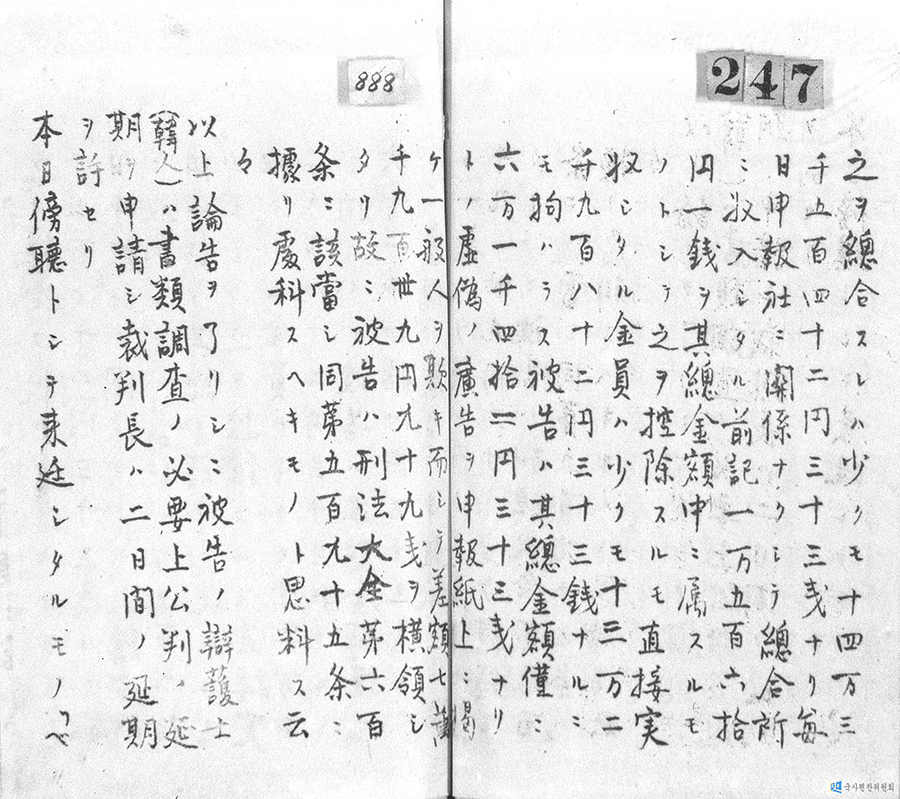 247
之ヲ總合スレハ少クモ十四万三
千五百四十二円三十三戔ナリ毎
日申報社ニ関係ナクシテ總合所
ニ收入シタル前記一万五百六拾
円一銭ヲ其總金額中ニ属スルモ
ノトシテ之ヲ控除スルモ直接実
收シタル金員ハ少クモ十三万二
千九百八十二円三十三銭ナルニ
モ拘ハラス被告ハ其總金額僅ニ
六万一千四拾二円三十三戔ナリ
トノ虚偽ノ廣告ヲ申報紙上ニ掲
ケ一般人ヲ欺キ而シテ差額七萬
千九百卅九円九十九戔ヲ横領シ
タリ故ニ被告ハ刑法大全第六百
条ニ該當シ同第五百九十五条ニ
據リ處科スヘキモノト思料ス云
々
888
以上論告ヲ了リシニ被告ノ辯護士
(韓人)ハ書類調査ノ必要上公判ノ延
期ヲ申請シ裁判長ハ二日間ノ延期
ヲ許セリ
本日傍聽トシテ来廷シタルモノ
국사편찬위원회